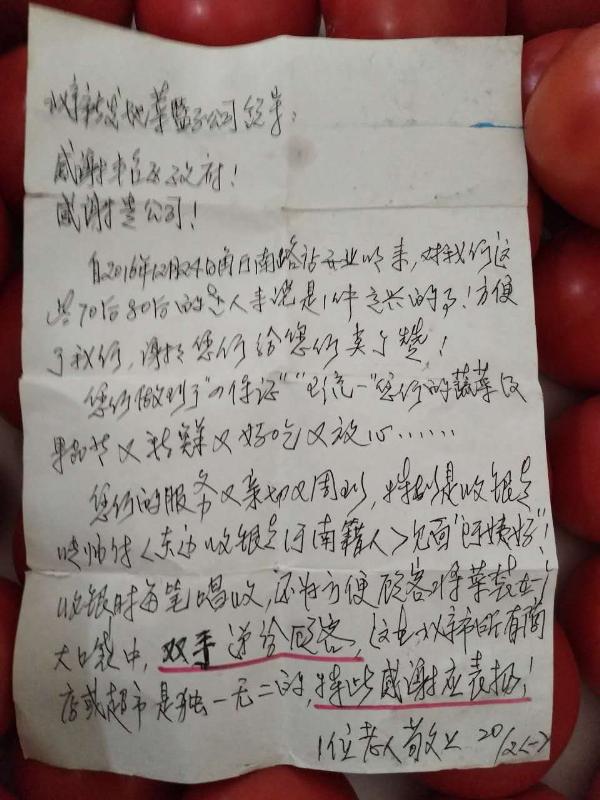 北京新发地菜篮子公司领导：
感谢丰台区政府！
感谢贵公司！
自2016年12月24日角门南路站开业以来，对我们这
些70后80后的老人来说是1件高兴的事！方便
了我们，谢谢您们给您们卖了赞！
您们做到了"保证""统一"您们的蔬菜及
果品节又新鲜又好吃又放心……
您们的服务又亲切又周到，特别是收银员
师付<东边收银员河南籍人>见面"阿姨好"！
收银时每笔唱收，还为方便顾客将菜装在一
大口袋中，双手递给顾客，这在北京市所有商
店或超市是独一无二的，特此感谢应表扬！
1位老人敬上 20/2<一>